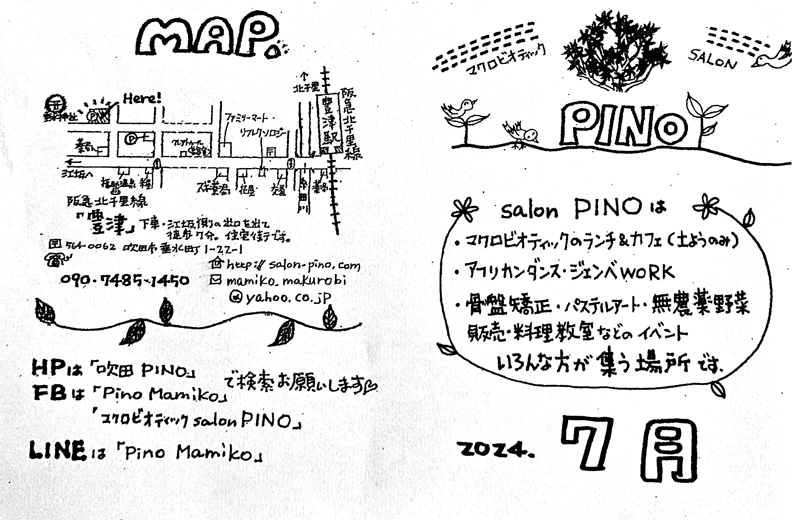 MAP.
Here!
PINO
P
ファミリーマート
リフレクソロジー
北千里
豊津駅
阪急北千里線
江坂へ
阪急北千里線
「豊津」下車・江坂側の出口を出て
徒歩7分。住宅街です。
564-0062 吹田市垂水町1-22-1
090-7485-1450
http://salon-pino.com
mamiko_makurobi
@yahoo.co.jp
HPは「吹田PINO」
FBは「Pino Mamiko」
「マクロビオティックsalon PINO」
で検索お願いします♡
LINEは「Pino Mamiko」
マクロビオティック
SALON
PINO
salon PINOは
・マクロビオティックのランチ&カフェ(土ようのみ)
・アフリカンダンス・ジェンベWORK
・骨盤矯正・パステルアート・無農薬野菜
販売・料理教室などのイベント
いろんな方が集う場所です.
2024. 7月